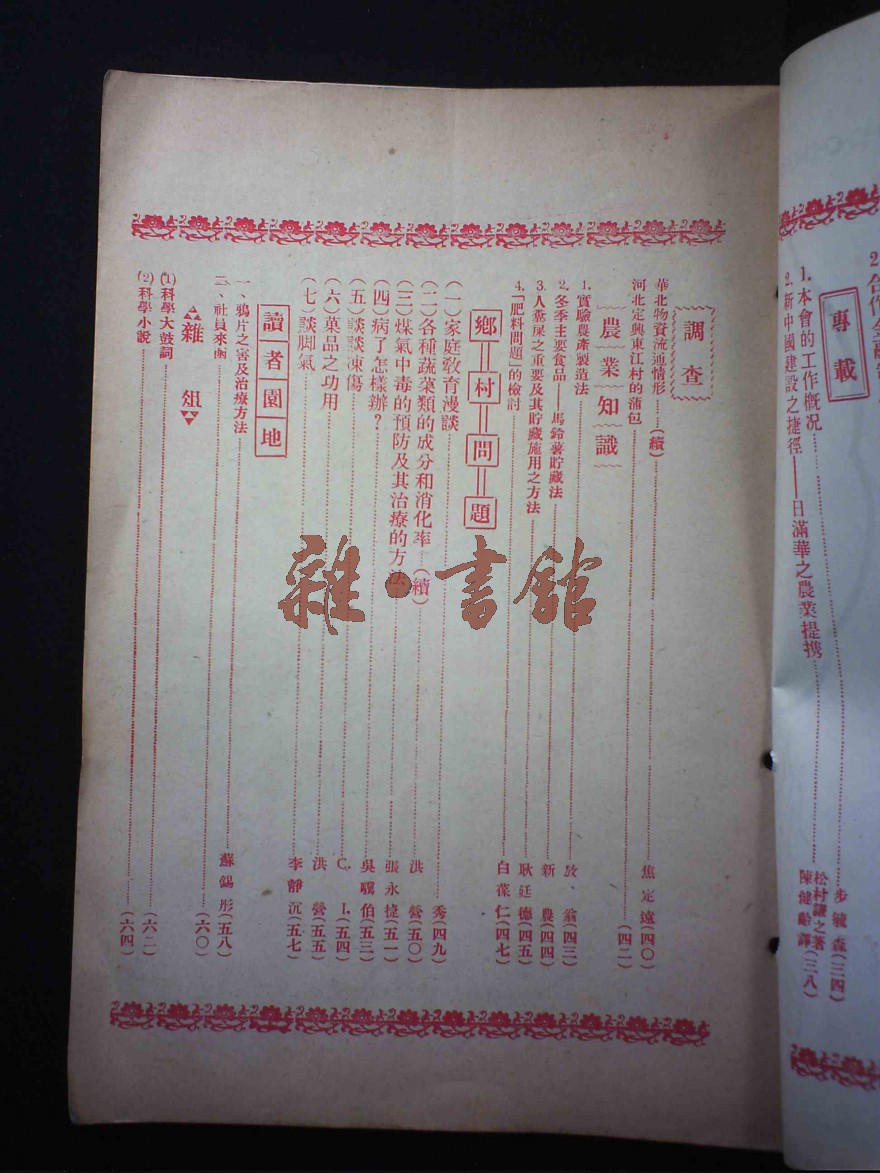 專載
1.本會的工作概况 步毓森(三四)
2.新中國建設之捷徑——日滿華之農業提携 松村謙之著 陳健齡譯(三八)
調查
華北物資流通情形(續) 焦定遠(四〇)
河北定興東江村的蒲包 (四二)
農業知識
1.實驗農產製造法 放翁(四三)
2.冬季主要食品——馬鈴薯貯藏法 新農(四四)
3.人糞尿之重要及其貯藏施用之方法 耿廷德(四五)
4.「肥料問題」的檢討 白葆仁(四七)
鄉村問題
(一)家庭敎育漫談 秀(四九)
(二)各種蔬菜類的成分和消化率(續) 洪營(五〇)
(三)煤氣中毒的預防及其治療的方法 張永捷(五一)
(四)病了怎樣辦? 吳驥伯(五三)
(五)談談凍傷 C.I.(五四)
(六)菓品之功用 洪營(五五)
(七)談脚氣 李靜沉(五七)
讀者園地
一、鴉片之害及治療方法 蘇錫彤(五八)
二、社員來函 (六〇)
雜俎
(1)科學大鼓詞 (六二)
(2)科學小說 (六四)
雜·書館